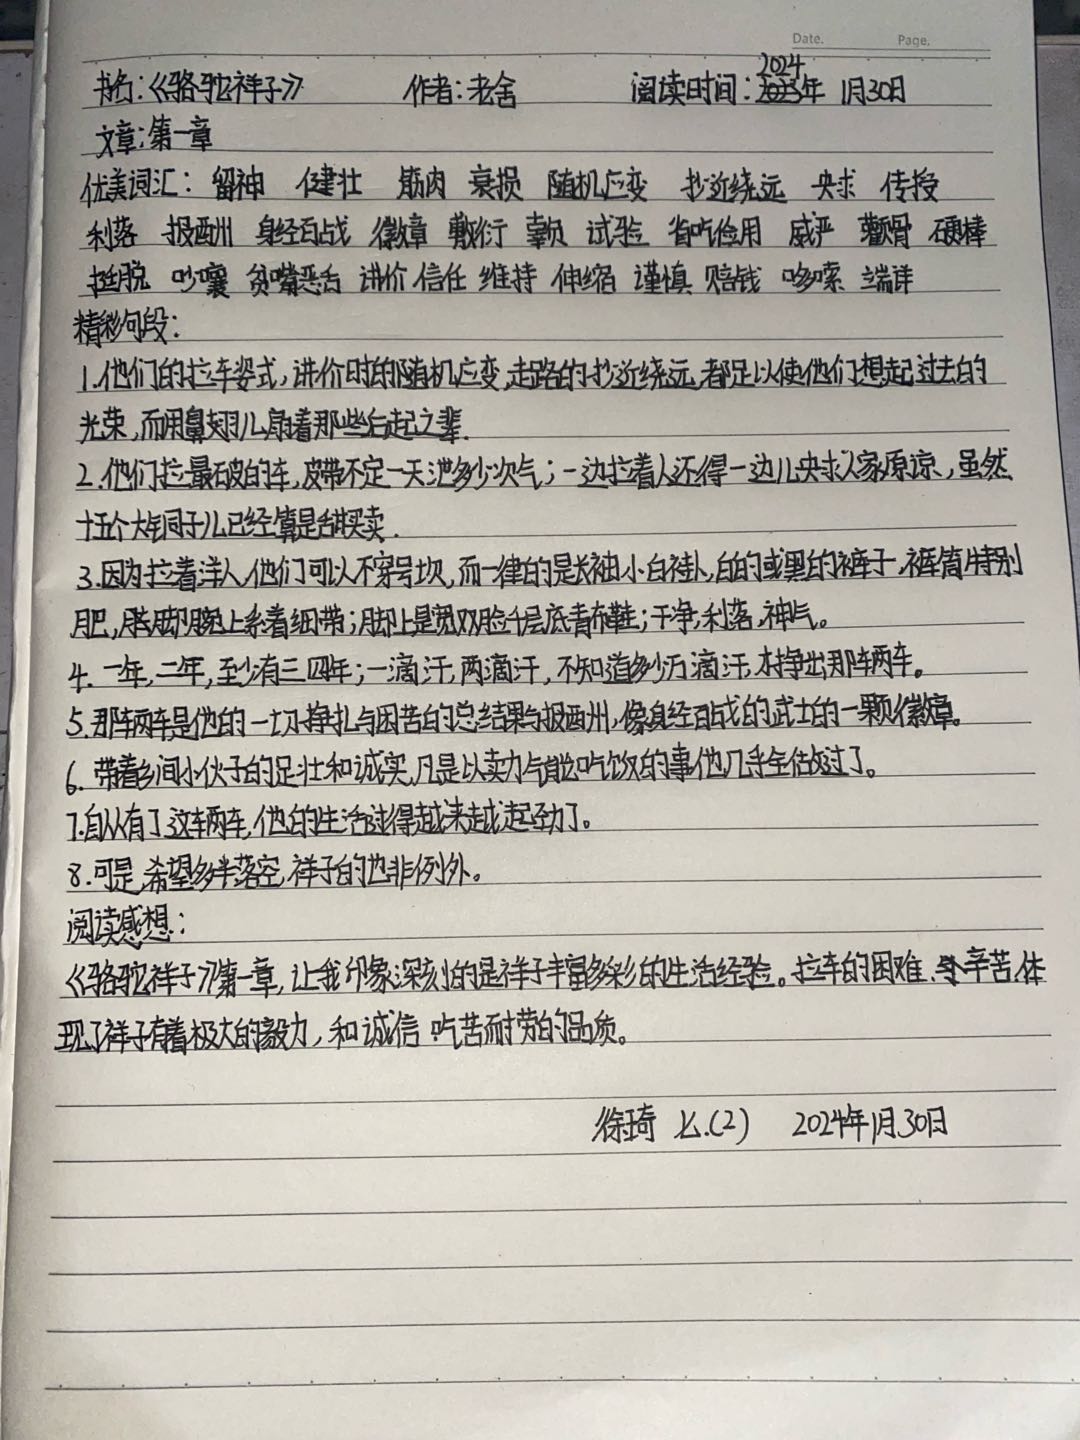 Date. Page.
书名：《骆驼祥子》 作者：老舍 阅读时间：2024年 1月30日
文章：第一章
优美词汇： 留神 健壮 筋肉 衰损 随机应变 抄近绕远 央求 传授
利落 报酬 身经百战 徽章 敷衍 辜负 试验 省吃俭用 威严 颧骨 硬棒
挺脱 吵嚷 贫嘴恶舌 讲价 信任 维持 伸缩 谨慎 赔钱 哆嗦 端详
精彩句段：
1.他们的拉车姿式，讲价时的随机应变，走路的抄近绕远，都足以使他们想起过去的
光荣，而用鼻翅儿扇着那些后起之辈.
2.他们拉最破的车，皮带不定一天泄多少次气；一边拉着人还得一边儿央求人家原谅，虽然
十五个大铜子儿已经算是甜买卖.
3.因为拉着洋人，他们可以不穿号坎，而一律的是长袖小白褂，白的或黑的裤子，裤筒特别
肥，脚腕上系着细带；脚上是宽双脸千层底青布鞋；干净，利落，神气。
4.一年，二年，至少有三四年；一滴汗，两滴汗，不知道多少万滴汗，才挣出那辆车。
5.那辆车是他的一切挣扎与困苦的总结果与报酬，像身经百战的武士的一颗徽章。
6.带着乡间小伙子的足壮和诚实，凡是以卖力气就能吃饭的事他几乎全做过了。
7.自从有了这辆车，他的生活过得越来越起劲了。
8.可是，希望多半落空，祥子的也非例外。
阅读感想：
《骆驼祥子》第一章，让我印象深刻的是祥子丰富多彩的生活经验。拉车的困难、辛苦，体
现了祥子有着极大的毅力，和诚信，吃苦耐劳的品质。
徐琦 七.(2) 2024年1月30日